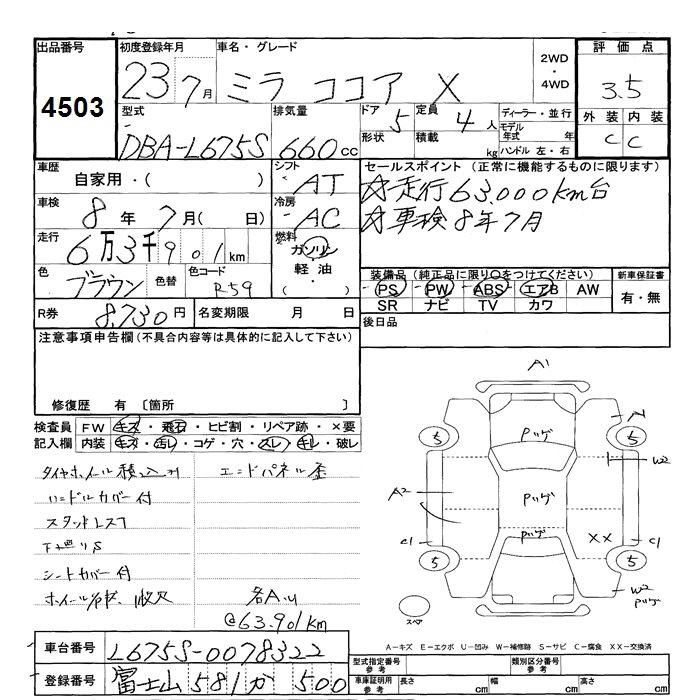 出品番号 初度登録年月 車名・グレード 2WD・4WD 評価点
4503 23 7月 ミラ ココア X 3.5
型式 排気量 ドア 5 定員 4人 ディーラー・並行 外装 内装
DBA-L675S 660cc 形状 積載 kg モデル年式 年 ハンドル 左・右 C C
車歴 自家用・( ) シフト AT セールスポイント (正常に機能するものに限ります)
車検 8年 7月( 日) 冷房 AC ☆走行63,000km台
走行 6万3千901km 燃料 ガソリン ☆車検8年7月
色 ブラウン 色替 色コード R59 軽油・( )
装備品(純正品に限り○をつけてください) 新車保証書
PS PW ABS エアB AW 有・無
SR ナビ TV カワ
R券 8,730円 名変期限 月 日 後日品
注意事項申告欄(不具合内容等は具体的に記入して下さい)
修復歴 有 〔箇所 〕
検査員 FW キズ・飛石・ヒビ割・リペア跡・×要
記入欄 内装 キズ・汚レ・コゲ・穴・スレ・キレ・破レ
タイヤホイル積込み エンドパネル歪
ハンドルカバー付
スタッドレス
下廻りS
シートカバー付
ホイール
各AU
@63.901km
A1
A1
5 5
Pツゲ
W2
A2
Pツゲ
Pツゲ
XX
C1 C1
5 5
W2
Pツゲ
スペア
A-キズ E-エクボ U-凹み W-補修跡 S-サビ C-腐食 XX-交換済
車台番号 L675S-0078322
登録番号 富士山 581 か 500
型式指定番号 参考 類別区分番号 参考
車庫証明用 参考 長さ cm 幅 cm 高さ cm